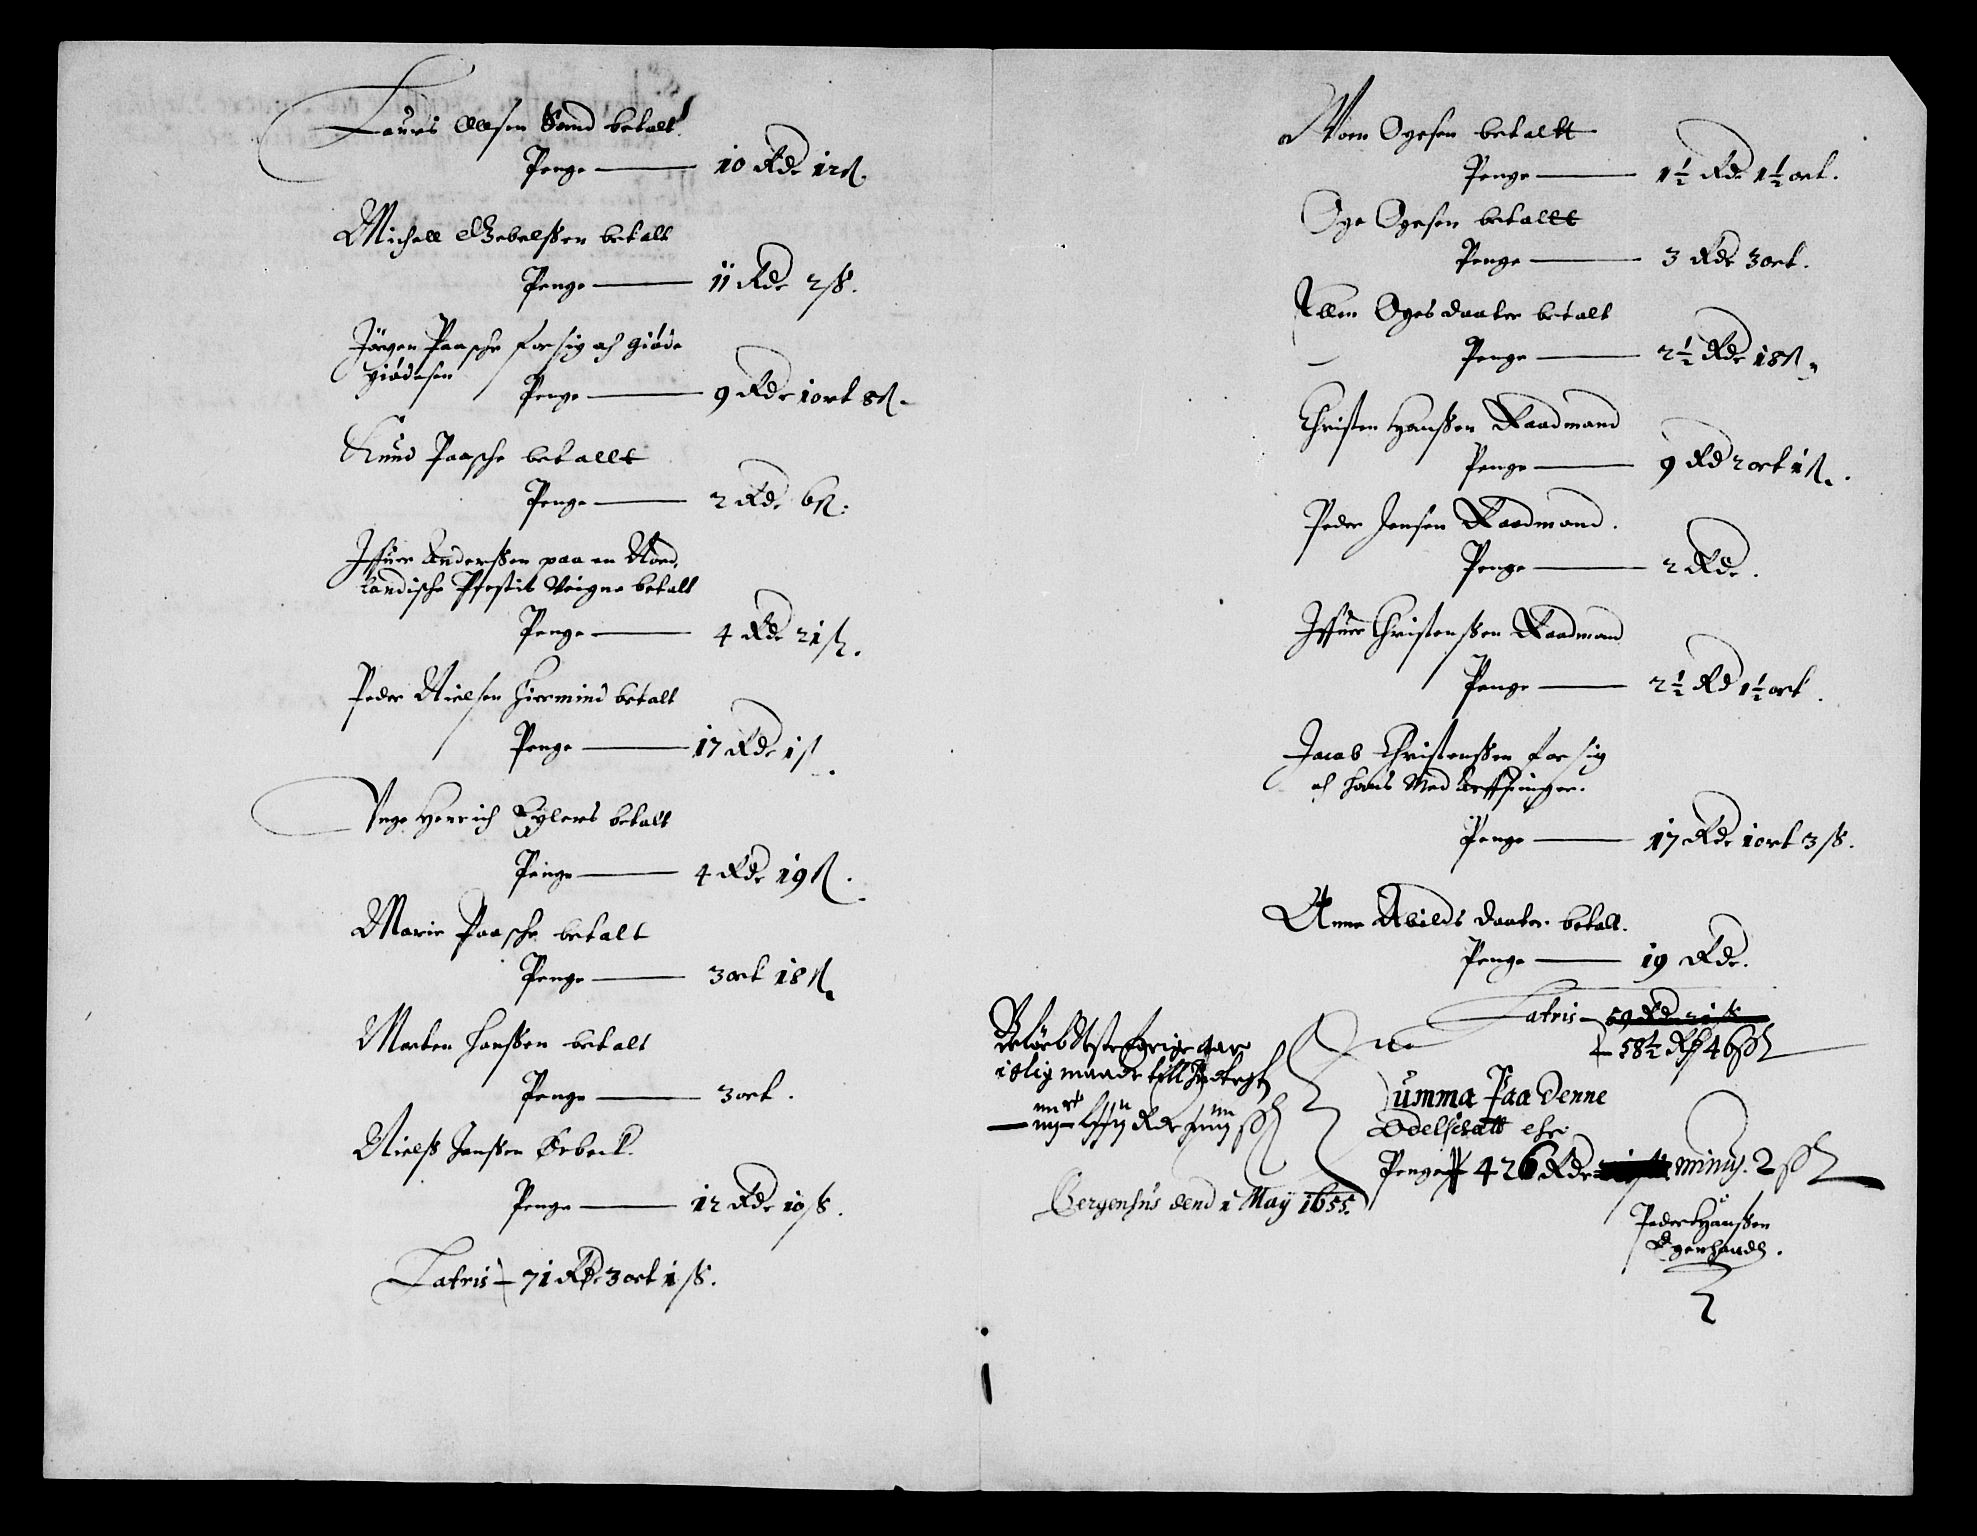 Laurs Ollsen Sand betalt
Penge — 10 Rdr 12 ß.
Michell Gebelßen betalt
Penge — 11 Rdr 2 ß.
Jörgen Paasche for sig och giöde
giödesen
Penge — 9 Rdr 1 ort 8 ß.
Knud Paasche betallt
Penge — 2 Rdr 6 ß.
Iffuer Anderßen paa en Nord,
landische Prestis Veigne betalt
Penge — 4 Rdr 21 ß.
Peder Nielsen Hiermind betalt
Penge — 17 Rdr 1 ß
Unge Henrich Eylers betalt
Penge — 4 Rdr 19 ß.
Marie Paasche betalt
Penge — 3 ort 18 ß.
Morten Hanßen betalt
Penge — 3 ort.
Nielß Janßen Orbeck.
Penge — 12 Rdr 10 ß.
Latris — 71 Rdr 3 ort 1 ß.
Morn Ogesen betaltt
Penge — 1½ Rdr 1½ ort.
Oge Ogesen betaltt
Penge — 3 Rdr 3 ort.
Ellen Oges daater betalt
Penge — 2½ Rdr 18 ß.
Christen Hanßen Raadmand
Penge — 9 Rd 2 ort 1 ß.
Peder Jensen Raadmand.
Penge — 2 Rdr.
Iffuer Christenßen Raadmand
Penge — 2½ Rd 1½ ort.
Jacob Christenßen for sig
och Hans Med Arffuinger.
Penge — 17 Rdr 1 ort 3 ß.
Anne Abilds daater betalt.
Penge — 19 Rdr.
Latris — 59 Rdr 21 ß
58½ Rdr 46 ß
Summa Paa denne
Odelschatt ehr
Penge 426 Rdr minus 2 ß
Bergenhus dend 1 May 1655.
Peder Hanßen
Egenhandt.